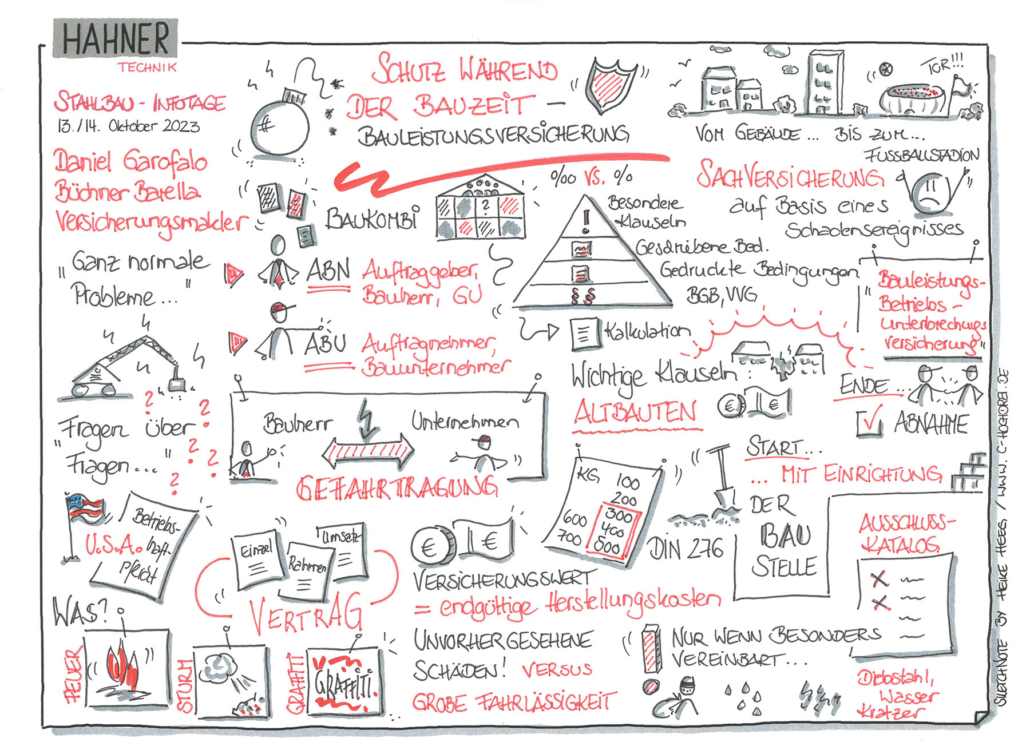 HAHNER
TECHNIK
STAHLBAU - INFOTAGE
13./14. Oktober 2023
Daniel Garofalo
Büchner Barella
Versicherungsmakler
"Ganz normale
Probleme..."
"Fragen über
Fragen..."
?
?
?
?
?
U.S.A.
Betriebs-
haft-
pflicht
WAS?
FEUER
STURM
GRAFFITI
GRAFFITI
SCHUTZ WÄHREND
DER BAUZEIT –
BAULEISTUNGSVERSICHERUNG
BAUKOMBI
?
ABN
Auftraggeber,
Bauherr, GU
ABU
Auftragnehmer,
Bauunternehmer
Bauherr
Unternehmen
GEFAHRTRAGUNG
Einzel
Rahmen
Umsatz
VERTRAG
‰ VS. %
!
§ §
Besondere
Klauseln
Geschriebene Bed.
Gedruckte Bedingungen
BGB, VVG
Kalkulation
Wichtige Klauseln:
ALTBAUTEN
€
€
KG
100
200
300
400
500
600
700
DIN 276
€
€
VERSICHERUNGSWERT
= endgültige Herstellungskosten
UNVORHERGESEHENE
SCHÄDEN! VERSUS
GROBE FAHRLÄSSIGKEIT
TOR!!!
VOM GEBÄUDE... BIS ZUM...
FUSSBALLSTADION
SACHVERSICHERUNG
auf Basis eines
Schadensereignisses
"Bauleistungs-
Betriebs-
unterbrechungs
versicherung"
ENDE...
ABNAHME
START...
... MIT EINRICHTUNG
DER
BAU
STELLE
AUSSCHLUSS-
KATALOG
NUR WENN BESONDERS
VEREINBART...
Diebstahl,
Wasser
Kratzer
SKETCHNOTE BY HEIKE HEEG / WWW.C-HOCHDREI.DE